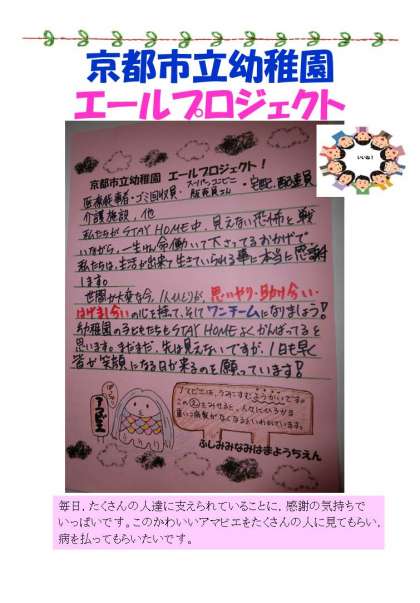 京都市立幼稚園
エールプロジェクト
いいね！
京都市立幼稚園　エールプロジェクト！
医療従事者・ゴミ回収員・スーパー、コンビニ販売員さん・宅配、配達員
介護施設、他
私たちがSTAY HOME中、見えない恐怖と戦
いながら、一生けん命働いて下さってるおかげで
私たちは、生活が出来て生きていられる事に本当に感謝
します。
世間が大変な今、1人1人が、思いやり・助け合い・
はげまし合いの心を持って、そして ワンチームになりましょう！
幼稚園の子どもたちもSTAY HOMEよくがんばってると
思います。まだまだ、先は見えないですが、1日も早く
皆が笑顔になる日が来るのを願っています！
アマビエ
アマビエは、うみにすむようかいです。
このえをみせると、人々にひろがる
重い病気がなくなるといわれています。
ふしみみなみはまようちえん
毎日，たくさんの人達に支えられていることに，感謝の気持ちで
いっぱいです。このかわいいアマビエをたくさんの人に見てもらい，
病を払ってもらいたいです。